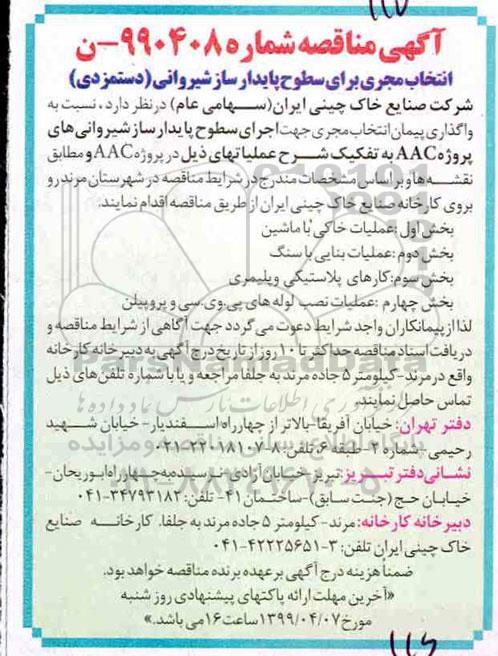 ۱۱۷
آگهی مناقصه شماره ۹۹۰۴۰۸-ن
انتخاب مجری برای سطوح پایدار ساز شیروانی (دستمزدی)
شرکت صنایع خاک چینی ایران (سهامی عام) درنظر دارد، نسبت به
واگذاری پیمان انتخاب مجری جهت اجرای سطوح پایدار ساز شیروانی های
پروژه AAC به تفکیک شرح عملیاتهای ذیل در پروژه AAC و مطابق
نقشه ها و بر اساس مشخصات مندرج در شرایط مناقصه در شهرستان مرند رو
بروی کارخانه صنایع خاک چینی ایران از طریق مناقصه اقدام نمایند.
بخش اول: عملیات خاکی با ماشین
بخش دوم: عملیات بنایی با سنگ
بخش سوم: کارهای پلاستیکی و پلیمری
بخش چهارم: عملیات نصب لوله های پی.وی.سی و پروپیلن
لذا از پیمانکاران واجد شرایط دعوت می گردد جهت آگاهی از شرایط مناقصه و
دریافت اسناد مناقصه حداکثر تا ۱۰ روز از تاریخ درج آگهی به دبیرخانه کارخانه
واقع در مرند-کیلومتر ۵ جاده مرند به جلفا مراجعه و یا با شماره تلفن های ذیل
تماس حاصل نمایند.
دفتر تهران: خیابان آفریقا-بالاتر از چهارراه اسفندیار- خیابان شهید
رحیمی-شماره ۲- طبقه ۶ تلفن: ۸-۲۲۰۱۸۱۰۷-۰۲۱
نشانی دفتر تبریز: تبریز-خیابان آزادی-نرسیده به چهارراه ابوریحان-
خیابان حج (جنت سابق)-ساختمان ۴۱- تلفن: ۳۴۷۹۳۱۸۲-۰۴۱
دبیرخانه کارخانه: مرند-کیلومتر ۵ جاده مرند به جلفا. کارخانه صنایع
خاک چینی ایران تلفن: ۳-۴۲۲۲۵۶۵۱-۰۴۱
ضمناً هزینه درج آگهی بر عهده برنده مناقصه خواهد بود.
«آخرین مهلت ارائه پاکتهای پیشنهادی روز شنبه
مورخ ۱۳۹۹/۰۴/۰۷ ساعت ۱۶ می باشد.»